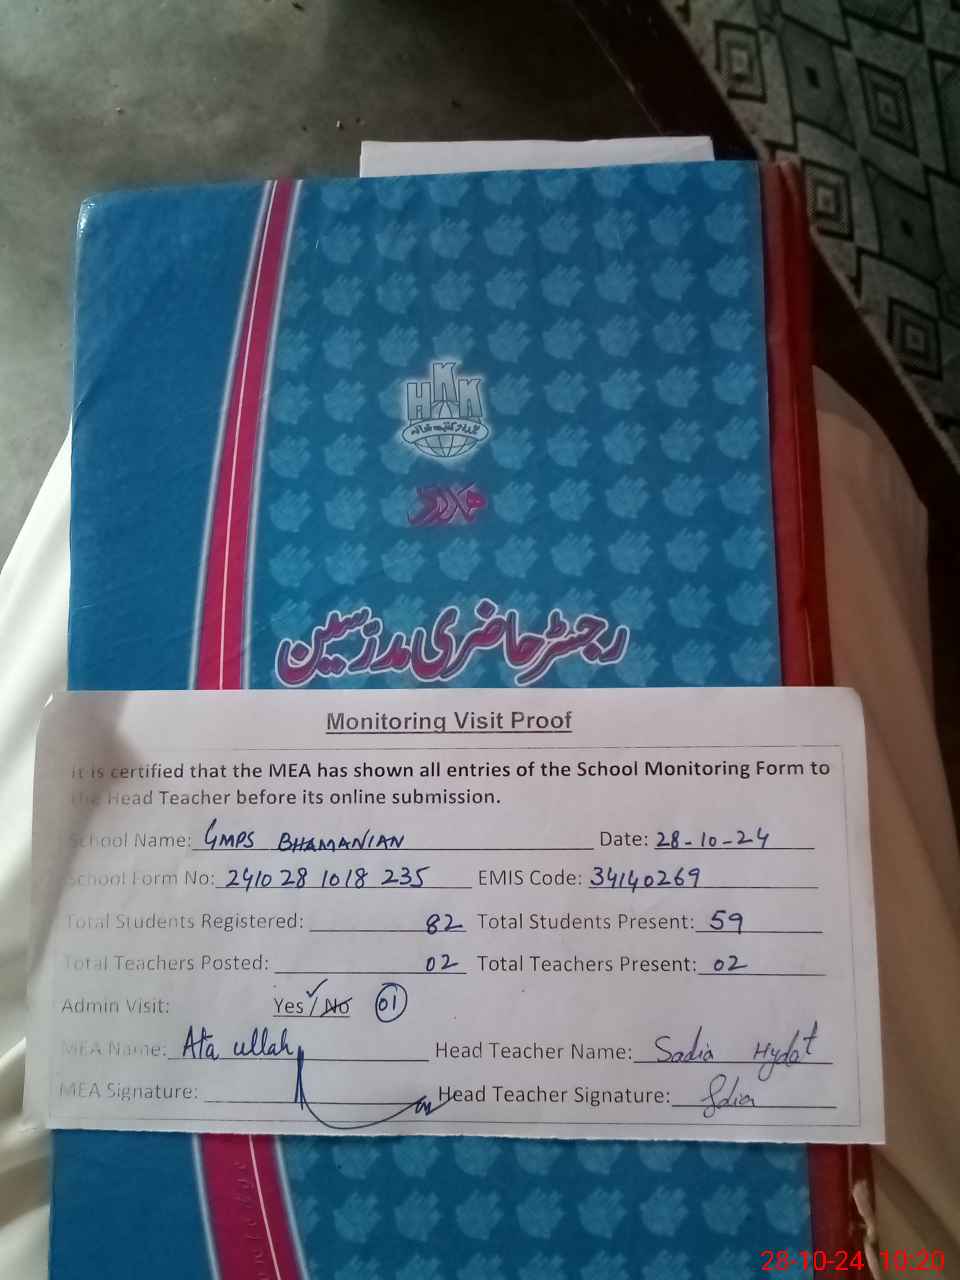 HKK
ہمدرد کتب خانہ
ہمدرد
رجسٹر حاضری مدرسین
Monitoring Visit Proof
It is certified that the MEA has shown all entries of the School Monitoring Form to
the Head Teacher before its online submission.
School Name: GMPS BHAMANIAN Date: 28-10-24
School Form No: 2410 28 1018 235 EMIS Code: 34140269
Total Students Registered: 82 Total Students Present: 59
Total Teachers Posted: 02 Total Teachers Present: 02
Admin Visit: Yes / No 01
MEA Name: Ata ullah Head Teacher Name: Sadia Hydat
MEA Signature: Head Teacher Signature: Sadia
28-10-24 10:20